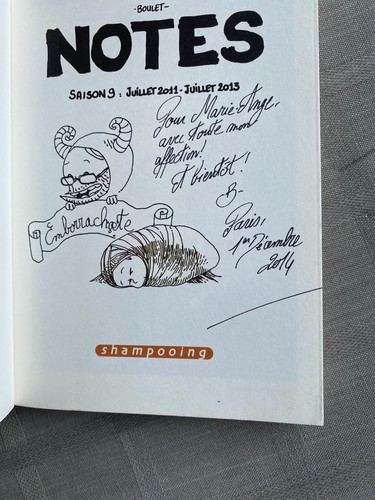 -BOULET-
NOTES
SAISON 9 : JUILLET 2011 - JUILLET 2013
Pour Marie-Ange,
avec toute mon
affection!
Et bientôt!
-B-
Paris,
1er Décembre
2014
Emborrachate
shampooing